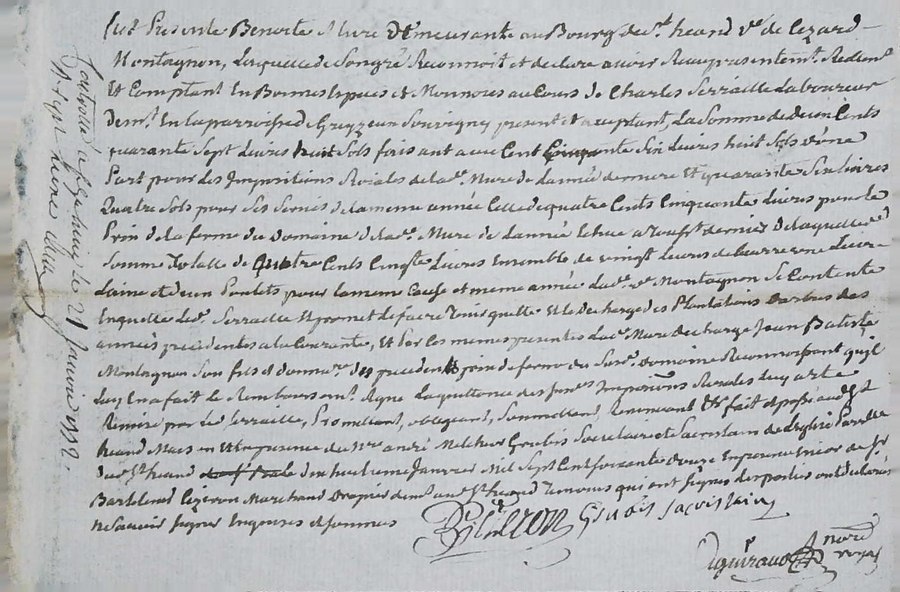 Est Presente Benoite Mure Demeurante au Bourg de St. heand Ve. de Cezard
Montagnon, Laquelle de Son gré Reconnoit et declare avoir Receu presentemt. Reellemt.
Et Comptant En Bonnes Especes et Monnoies au Cours de Charles Serraille Laboureur
Demt. En la parroisse de Grezieu Souvigny present et acceptant, La Somme de deux Cents
quarante Sept Livres huit Sols faisant avec Cent Cinquante Six Livres huit Sols d'une
Part pour Les Impositions Roiales de lad. Mure de L'année derniere Et quarante Six Livres
Quatre Sols pour Ses Servis de la meme année Celle de quatre Cents Cinquante Livres pour le
Prix de la ferme du Domaine de lad. Mure de L'année Echue a Toussts. dernier De laquelle
Somme Totalle de Quatre Cents Cinqte. Livres Ensemble de vingt Livres de beurre une Livre
Laine et deux Poulets pour la meme Cause et meme année Lad. Ve. Montagnon Se Contente
En quitte Led. Serraille Et promet Le faire Tenir quitte Et Le decharge des Plantations d'arbres des
années precedentes a la Courante, Et Par Les memes presentes Lad. Mure decharge Jean Batiste
Montagnon Son fils et donnatre. des precedents prix de ferme du Susd. Domaine Reconnoissant qu'il
Luy En a fait le Remboursemt. Ayant La quittance des Susd. Impositions Roiales Luy a été
Remise par Led. Serraille, Promettant, obligeant, Soumettant, Renonçant &c fait et passé aud. St.
heand Maison Et En presence de Mre. André Melchior Grubis Secretaire et Sacristain de L'eglise Parrlle.
dud. St. heand Le dix huitieme Janvier Mil Sept Cent Soixante douze En presence Encor de Sr.
Barthelemi Cizeron Marchand Drapier demt. aud. St. heand Temoins qui ont Signés Les parties ont declaré
Ne Savoir Signer Enquises et Sommées
B. Cizeron Grubis Sacristain
Dguiraud
nore.
royal
Controlé a St. heand Le 21 Janvier 1772.